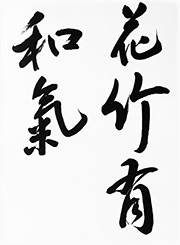 花竹有
和氣